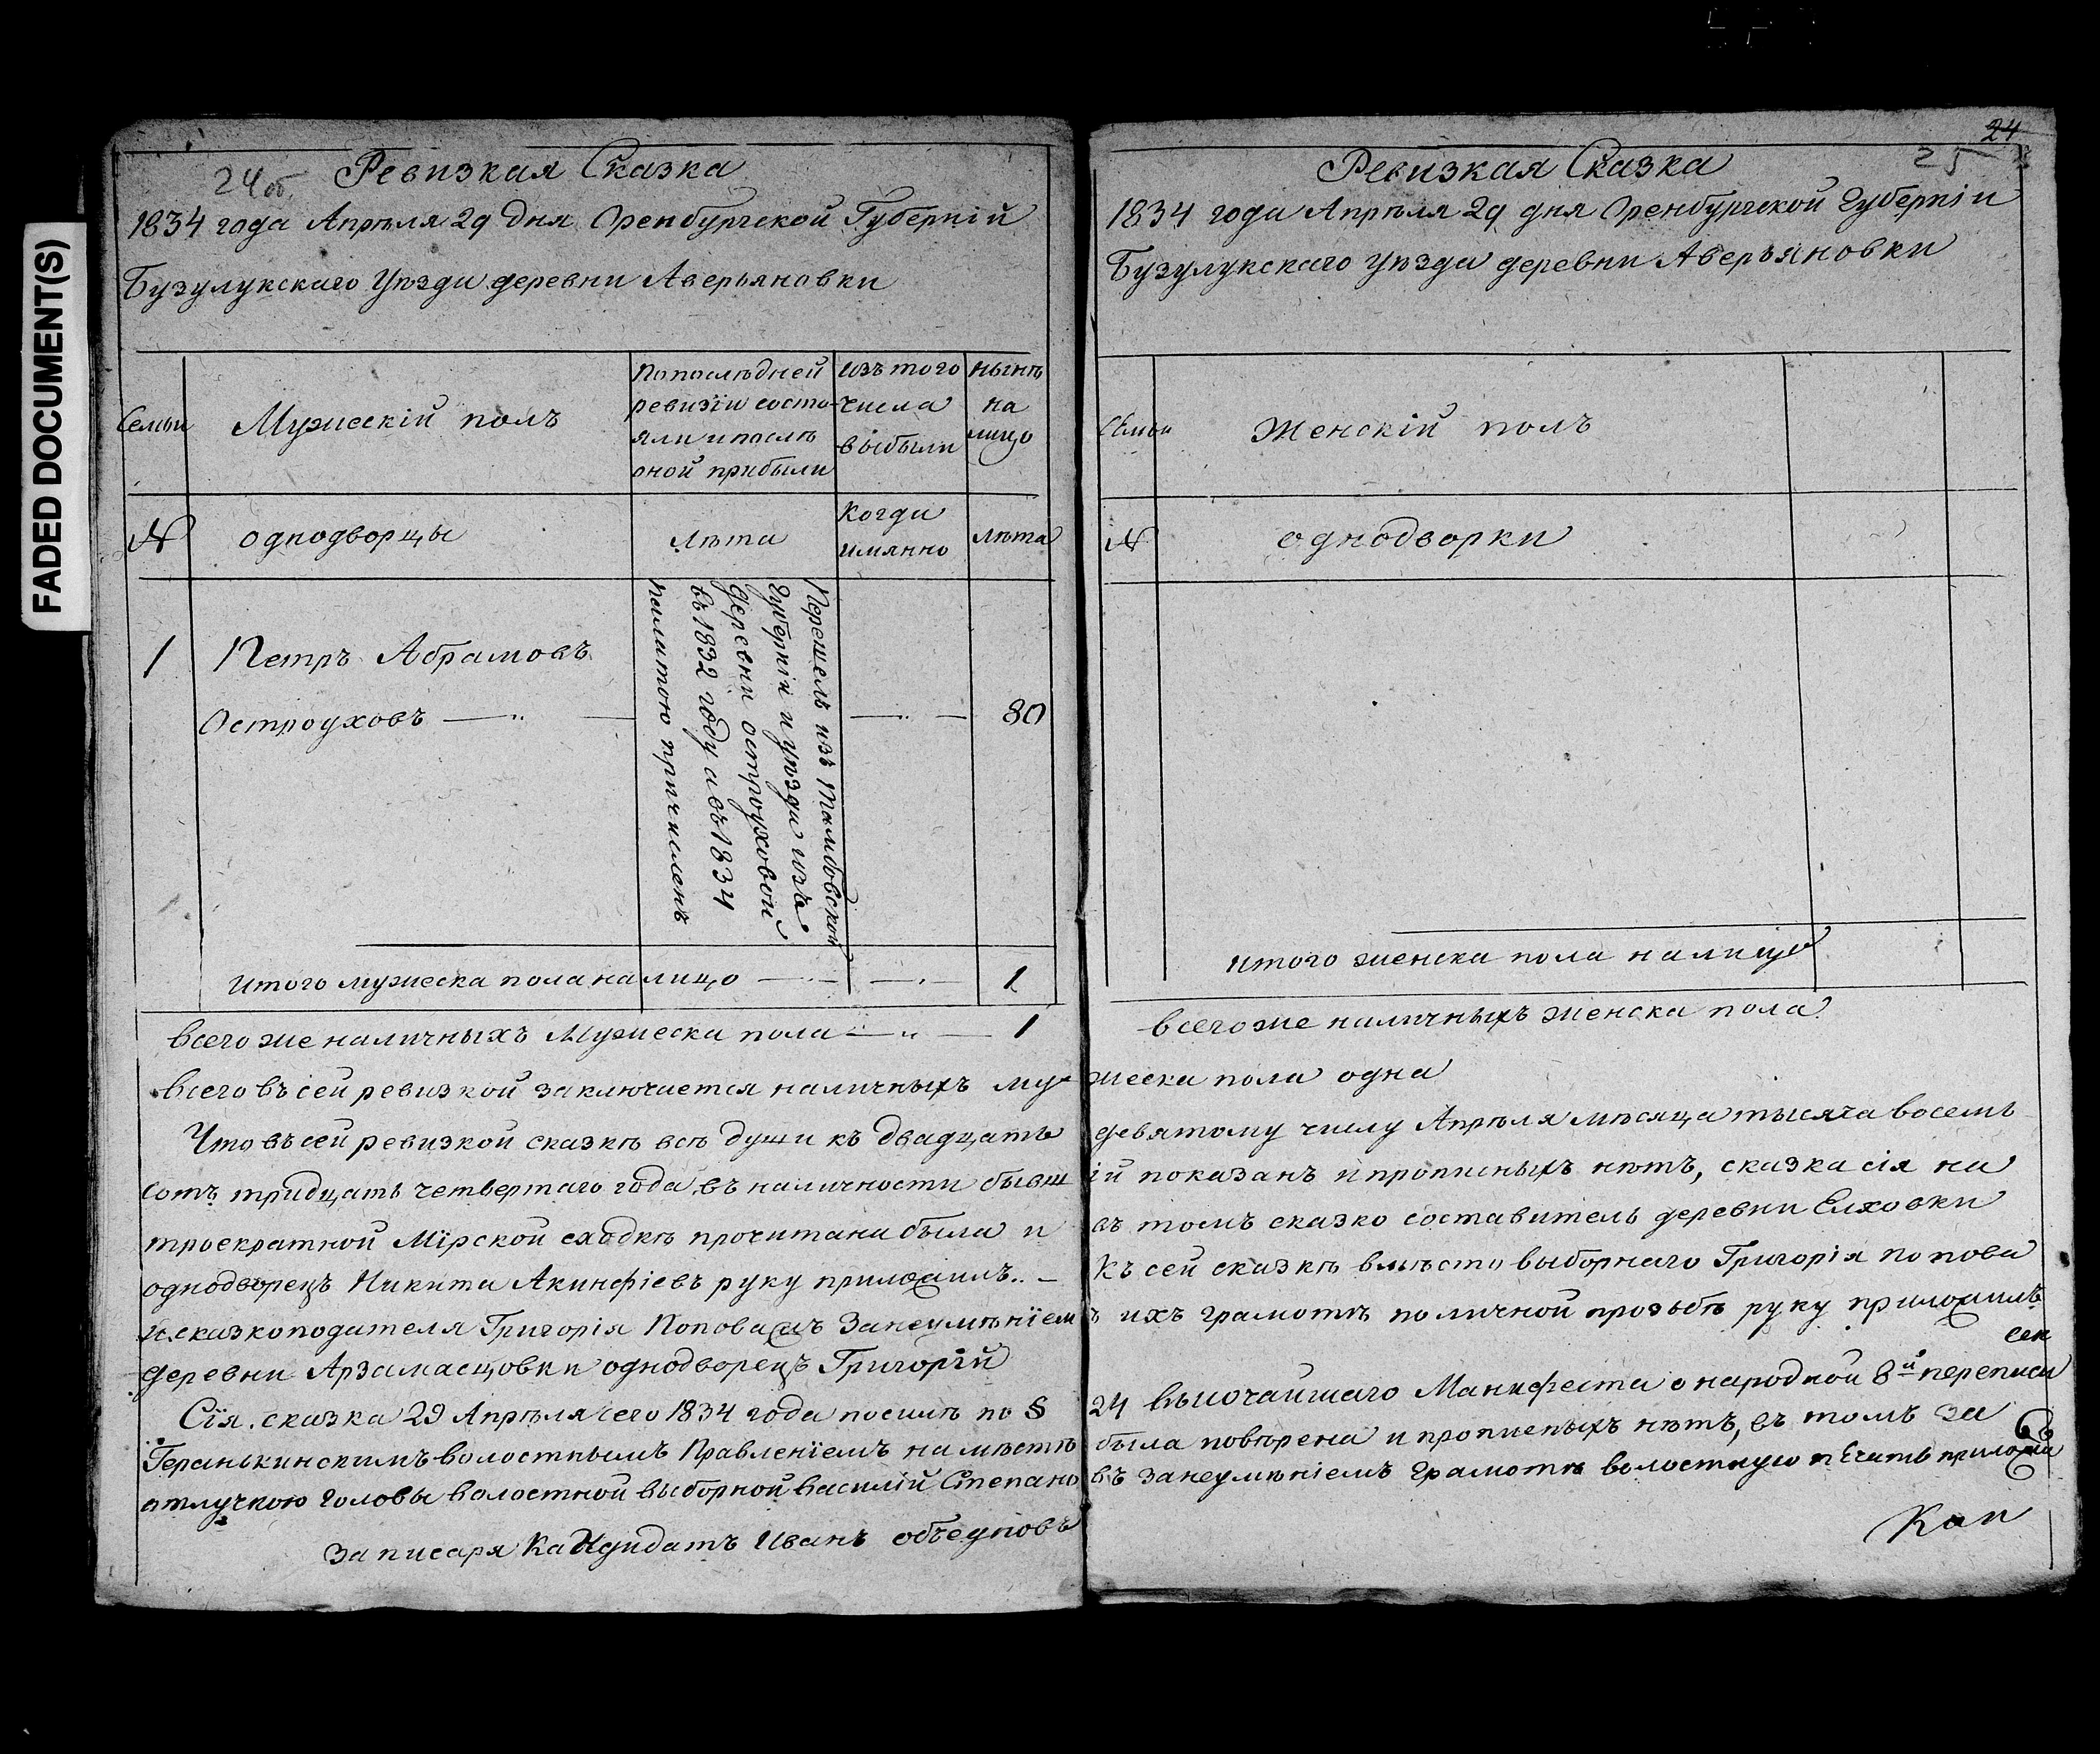 FADED DOCUMENT(S)
24об
Ревизкая Сказка
1834 года Апрѣля 29 дня Оренбургской Губерніи
Бузулукскаго уѣзда деревни Аверьяновки
Семьи
Мужескій полъ
По последней ревизіи состо-
яли и послѣ
оной прибыли
изъ того
числа
выбыли
ныне
на
лицо
№
однодворцы
лѣта
когда
имянно
лѣта
1
Петръ Абрамовъ
Остроуховъ
80
Перешелъ изъ Тамбовской
Губерніи и уѣзда изъ
деревни остроуховой
въ 1832 году а въ 1834
палатою причисленъ
итого мужеска пола на лицо 1
всего же наличныхъ Мужеска пола 1
всего въ сей ревизкой заключается наличныхъ му-
Что въ сей ревизкой сказкѣ всѣ души къ двадцать
сотъ тридцать четвертаго года въ наличности бывш
троекратной Мірской сходкѣ прочитана была и
однодворецъ Никита Акинфіевъ руку приложилъ
и сказкоподателя Григорія Попова за неумѣніем
деревни Арзамасцовки однодворецъ Григорій
Сія сказка 29 Апрѣля сего 1834 года по силѣ по §
Геранькинскимъ волостнымъ Правленіемъ на мѣстѣ
отлучкою головы волостной выборной василій Степано
За писаря Кандидатъ Иванъ объедновъ
24
25
Ревизкая Сказка
1834 года Апрѣля 29 дня Оренбургской Губерніи
Бузулукскаго уѣзда деревни Аверьяновки
Семьи
Женскій полъ
№
однодворки
итого женска пола на лице
всего же наличныхъ женска пола
жеска пола одна
девятому числу Апрѣля мѣсяца тысяча восемь
ій показанъ и прописныхъ нѣтъ, сказка сія на
въ томъ сказко составитель деревни Елховки
Къ сей сказкѣ вмѣсто выборнаго Григорія попова
ъ ихъ грамотѣ по личной прозьбѣ руку приложилъ
сен
24 высочайшаго Манифеста о народной 8й переписи
была поверена и прописныхъ нѣтъ, въ томъ за
въ за неумѣніемъ грамотѣ волостную печать приложи
Кан